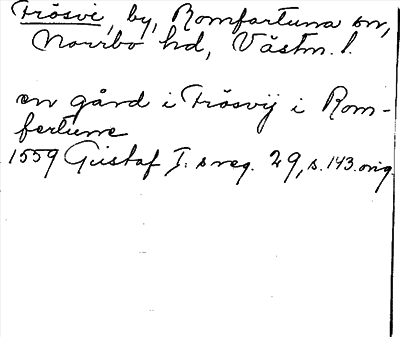 Frösvi, by, Romfartuna sn,
Norrbo hd, Västm. l.
en gård i Frösvij i Rom-
fertune
1559 Gustaf I:s reg. 29, s. 143. orig.